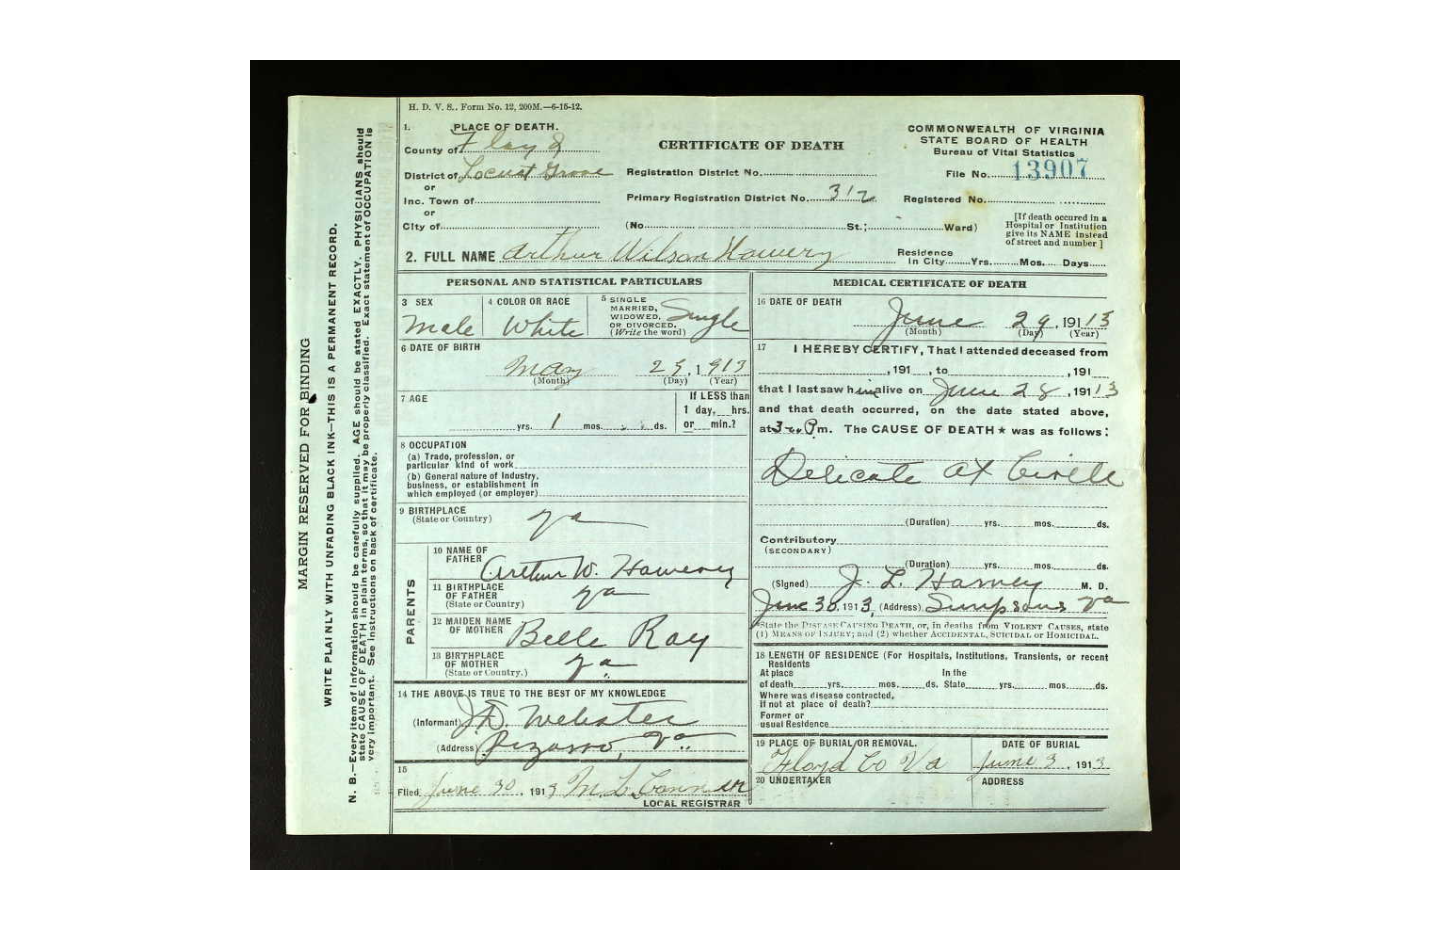 H. D. V. S., Form No. 12, 200M.—6-15-12.
1. PLACE OF DEATH.
County of Floyd
District of Locust Grove
or
Inc. Town of
or
City of
CERTIFICATE OF DEATH
Registration District No.
Primary Registration District No. 312
(No. St.; Ward)
COMMONWEALTH OF VIRGINIA
STATE BOARD OF HEALTH
Bureau of Vital Statistics
File No. 13907
Registered No.
[If death occured in a
Hospital or Institution
give its NAME instead
of street and number]
2. FULL NAME Arthur Wilson Howery
Residence
In City Yrs. Mos. Days
PERSONAL AND STATISTICAL PARTICULARS
3 SEX
Male
4 COLOR OR RACE
White
5 SINGLE
MARRIED,
WIDOWED,
OR DIVORCED.
(Write the word)
Single
6 DATE OF BIRTH
May 25, 1913
(Month) (Day) (Year)
7 AGE
yrs. 1 mos. ds.
If LESS than
1 day, hrs.
or min.?
8 OCCUPATION
(a) Trade, profession, or
particular kind of work
(b) General nature of Industry,
business, or establishment in
which employed (or employer)
9 BIRTHPLACE
(State or Country) Va
PARENTS
10 NAME OF
FATHER Arthur W. Howery
11 BIRTHPLACE
OF FATHER
(State or Country) Va
12 MAIDEN NAME
OF MOTHER Belle Ray
13 BIRTHPLACE
OF MOTHER
(State or Country.) Va
14 THE ABOVE IS TRUE TO THE BEST OF MY KNOWLEDGE
(Informant) J.D. Webster
(Address) Pizarro, Va.
15
Filed June 30, 1913 M. L. Conner
LOCAL REGISTRAR
MEDICAL CERTIFICATE OF DEATH
16 DATE OF DEATH
June 29, 1913
(Month) (Day) (Year)
17 I HEREBY CERTIFY, That I attended deceased from
, 191 , to , 191
that I last saw him alive on June 28, 1913
and that death occurred, on the date stated above,
at 3 P m. The CAUSE OF DEATH * was as follows:
Delicate at Birth
(Duration) yrs. mos. ds.
Contributory
(SECONDARY)
(Duration) yrs. mos. ds.
(Signed) J. L. Harvey M. D.
June 30, 1913, (Address) Simpsons Va
*State the DISEASE CAUSING DEATH, or, in deaths from VIOLENT CAUSES, state
(1) MEANS OF INJURY; and (2) whether ACCIDENTAL, SUICIDAL or HOMICIDAL.
18 LENGTH OF RESIDENCE (For Hospitals, Institutions, Transients, or recent
Residents
At place In the
of death yrs. mos. ds. State yrs. mos. ds.
Where was disease contracted,
If not at place of death?
Former or
usual Residence
19 PLACE OF BURIAL OR REMOVAL.
Floyd Co Va
DATE OF BURIAL
June 3, 1913
20 UNDERTAKER
ADDRESS
MARGIN RESERVED FOR BINDING
WRITE PLAINLY WITH UNFADING BLACK INK—THIS IS A PERMANENT RECORD.
N. B.—Every item of Information should be carefully supplied. AGE should be stated EXACTLY. PHYSICIANS should
state CAUSE OF DEATH in plain terms, so that it may be properly classified. Exact statement of OCCUPATION is
very important. See Instructions on back of certificate.